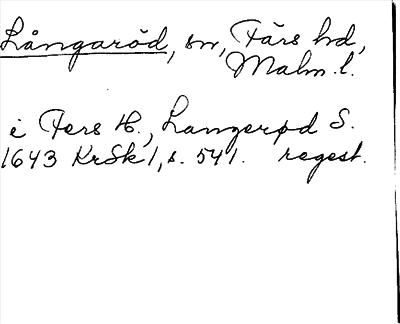 Långaröd, sn, Färs hd,
Malm. l.
i Fers H., Langerød S.
1643 KrSk 1, s. 541. regest.